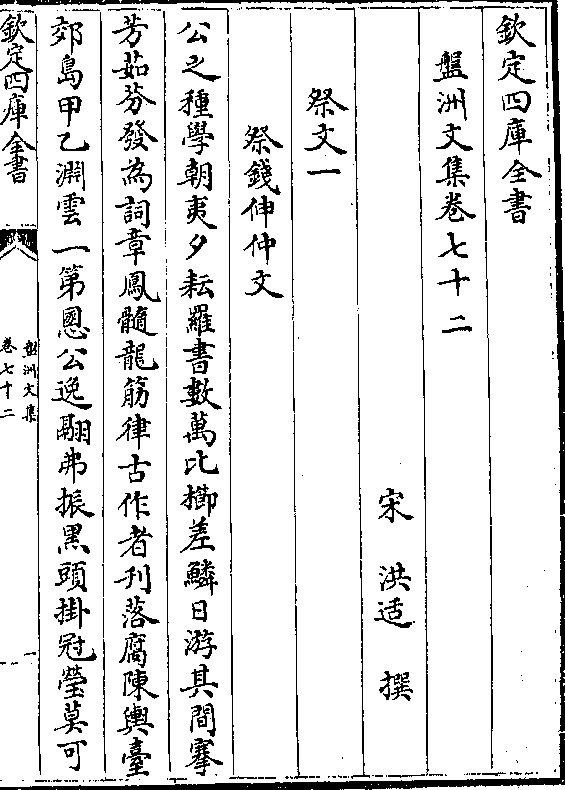 欽定四庫全書
盤洲文集卷七十二
宋 洪适 撰
祭文一
祭錢伸仲文
公之種學朝夷夕耘羅書數萬比櫛差鱗日游其間搴
芳茹芬發為詞章鳳髓龍筋律古作者刋落腐陳輿臺
郊島甲乙淵雲一第慁公逸翮弗振黑頭掛冠瑩莫可
欽定四庫全書
盤洲文集
卷七十二
一